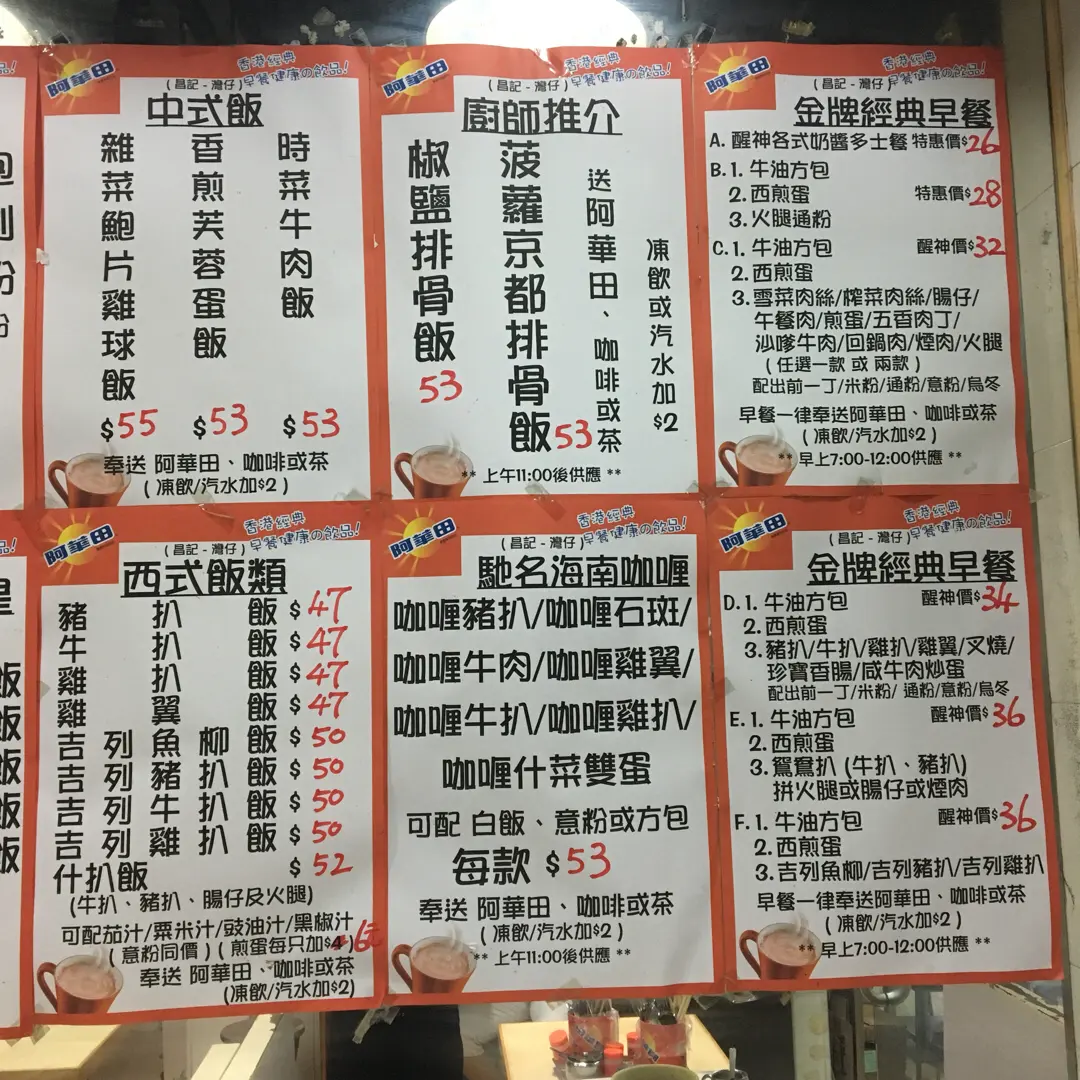 阿華田
香港經典
早餐健康の飲品!
(昌記-灣仔)
中式飯
雜菜鮑片雞球飯
$55
香煎芙蓉蛋飯
$53
時菜牛肉飯
$53
奉送 阿華田、咖啡或茶
(凍飲/汽水加$2)
阿華田
香港經典
早餐健康の飲品!
(昌記-灣仔)
廚師推介
椒鹽排骨飯
53
菠蘿京都排骨飯
53
送阿華田、咖啡或茶
凍飲或汽水加$2
** 上午11:00後供應 **
阿華田
香港經典
早餐健康の飲品!
(昌記-灣仔)
金牌經典早餐
A. 醒神各式奶醬多士餐 特惠價$26
B. 1. 牛油方包
2. 西煎蛋 特惠價$28
3. 火腿通粉
C. 1. 牛油方包 醒神價$32
2. 西煎蛋
3. 雪菜肉絲/榨菜肉絲/腸仔/
午餐肉/煎蛋/五香肉丁/
沙嗲牛肉/回鍋肉/煙肉/火腿
(任選一款 或 兩款)
配出前一丁/米粉/通粉/意粉/烏冬
早餐一律奉送阿華田、咖啡或茶
(凍飲/汽水加$2)
** 早上7:00-12:00供應 **
阿華田
香港經典
早餐健康の飲品!
(昌記-灣仔)
西式飯類
豬扒飯 $47
牛扒飯 $47
雞扒飯 $47
雞翼飯 $47
吉列魚柳飯 $50
吉列豬扒飯 $50
吉列牛扒飯 $50
吉列雞扒飯 $50
什扒飯 $52
(牛扒、豬扒、腸仔及火腿)
可配茄汁/粟米汁/豉油汁/黑椒汁
(意粉同價)(煎蛋每只加$
奉送 阿華田、咖啡或茶
(凍飲/汽水加$2)
阿華田
香港經典
早餐健康の飲品!
(昌記-灣仔)
馳名海南咖喱
咖喱豬扒/咖喱石斑/
咖喱牛肉/咖喱雞翼/
咖喱牛扒/咖喱雞扒/
咖喱什菜雙蛋
可配 白飯、意粉或方包
每款 $53
奉送 阿華田、咖啡或茶
(凍飲/汽水加$2)
** 上午11:00後供應 **
阿華田
香港經典
早餐健康の飲品!
(昌記-灣仔)
金牌經典早餐
D. 1. 牛油方包 醒神價$34
2. 西煎蛋
3. 豬扒/牛扒/雞扒/雞翼/叉燒/
珍寶香腸/咸牛肉炒蛋
配出前一丁/米粉/ 通粉/意粉/烏冬
E. 1. 牛油方包 醒神價$36
2. 西煎蛋
3. 鴛鴦扒 (牛扒、豬扒)
拼火腿或腸仔或煙肉
F. 1. 牛油方包 醒神價$36
2. 西煎蛋
3. 吉列魚柳/吉列豬扒/吉列雞扒
早餐一律奉送阿華田、咖啡或茶
(凍飲/汽水加$2)
** 早上7:00-12:00供應 **